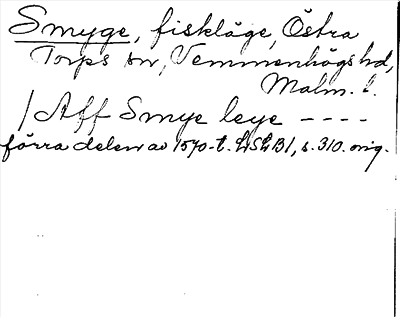 Smyge, fiskläge, Östra
Torps sn, Vemmenhögs hd,
Malm. l.
/ Aff Smye leye ----
förra delen av 1570-t. LSLB1, s. 310. orig.